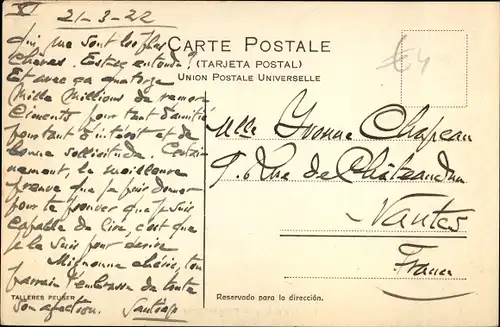 XI
21-3-22
qui me sont les plus
chères. Est-ce entendu?
Et avec ça quatorze
mille millions de remer-
ciments pour tant d'amitié
pour tant d'intérêt et de
bonne sollicitude. Certai-
nement, la meilleure
preuve que je puis donner
pour te prouver que je suis
capable de lire, c'est que
je le suis pour écrire
Mignonne chérie, ton
parrain t'embrasse de toute
son affection. Santiago
TALLERES PEUSER
CARTE POSTALE
(TARJETA POSTAL)
UNION POSTALE UNIVERSELLE
€4
Mlle Yvonne Chapeau
9. Rue de Châteaudun
Nantes
France
Reservado para la dirección.